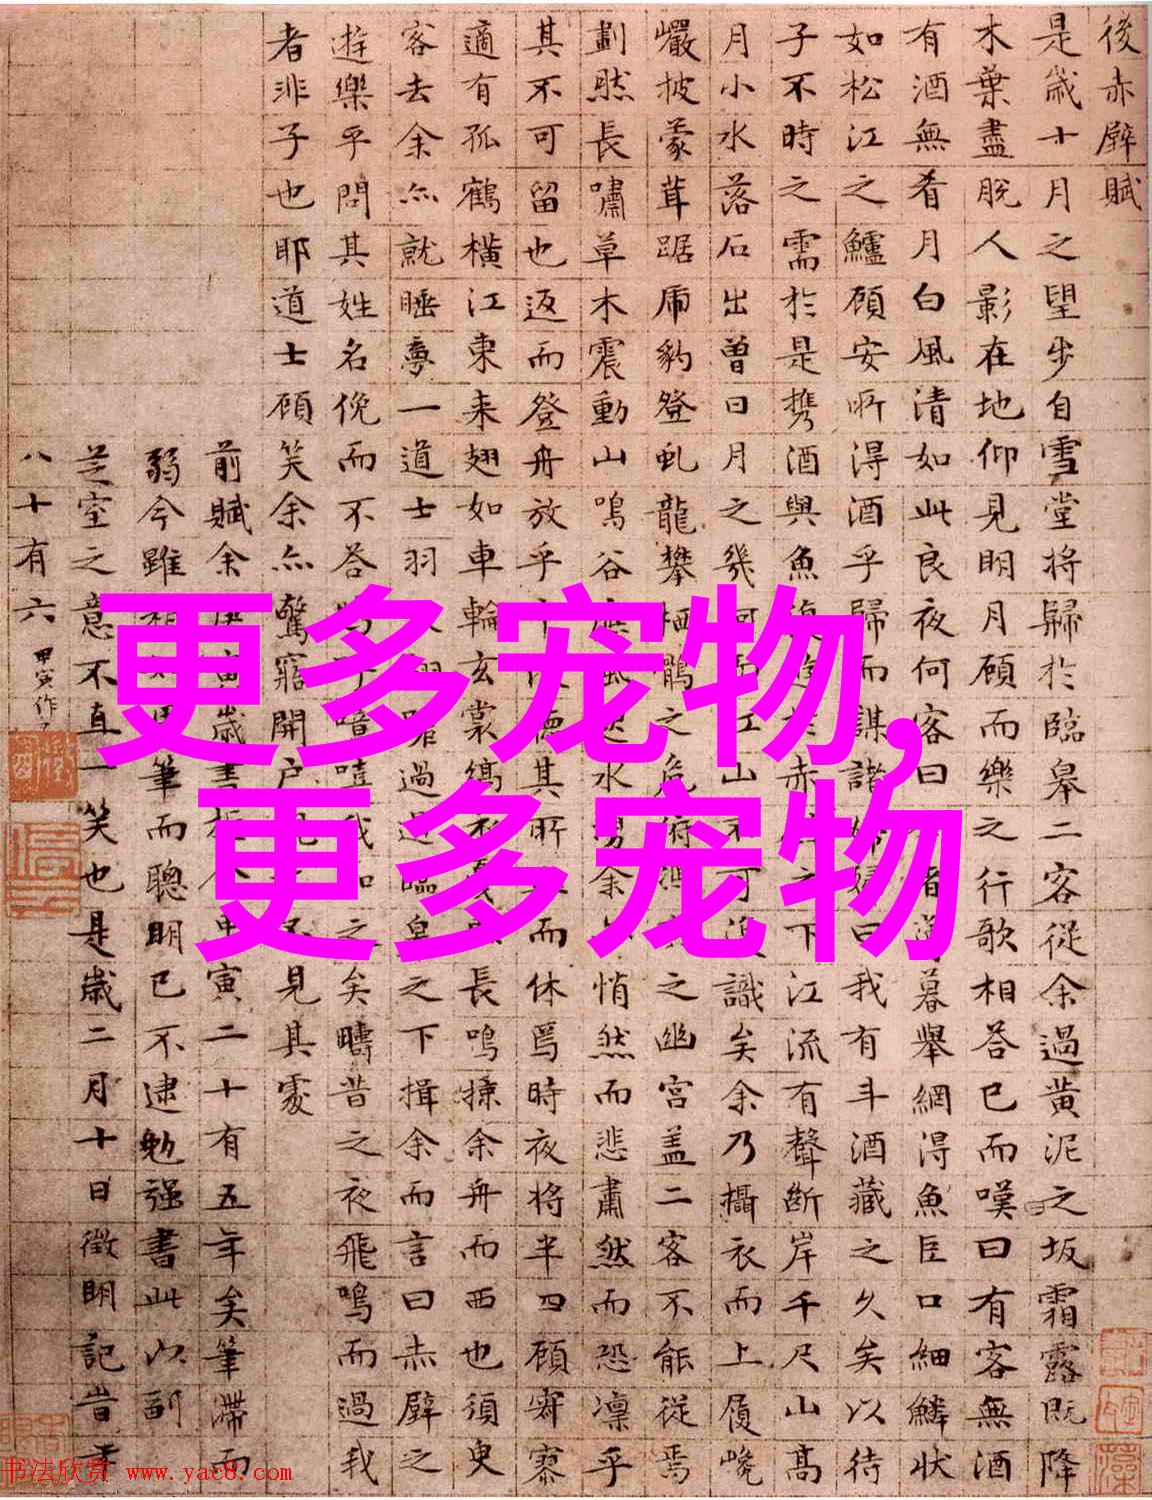 後赤壁賦
是歳十月之望步自雪堂将歸於臨皋二客從余過黄泥之坂霜露既降
木葉盡脱人影在地仰見明月顧而樂之行歌相荅已而嘆曰有客無酒
有酒無肴月白風清如此良夜何客曰者薄暮舉網得魚巨口細鱗状
如松江之鱸顧安所得酒乎歸而謀諸婦婦曰我有斗酒藏之久矣以待
子不時之需於是携酒與魚復遊於赤之下江流有聲断岸千尺山高
月小水落石出曽日月之幾何而江山不可復識矣余乃攝衣而上履巉
巗披蒙茸踞虎豹登虬龍攀栖鶻之危俯之幽宫盖二客不能從焉
劃然長嘯草木震動山鳴谷應風起水湧余亦悄然而悲肅然而恐凛乎
其不可留也返而登舟放乎中流聽其所止而休焉時夜将半四顧寂寥
適有孤鶴横江東来翅如車輪玄裳縞衣戞然長鳴掠余舟而西也須臾
客去余亦就睡夢一道士羽衣翩躚過臨皋之下揖余而言曰赤壁之
遊樂乎問其姓名俛而不荅嗚呼噫嘻我知之矣疇昔之夜飛鳴而過我
者非子也耶道士顧笑余亦驚寤開户視之不見其處
前賦余庚寅歳書抵今甲寅二十有五年矣筆滯而
弱今雖筆而聰明已不逮勉强書此以副
芝室之意不直一笑也是歳二月十日徵明記旹年
八十有六
甲寅作
更多宠物,
更多宠物
书法欣赏 www.yac8.com